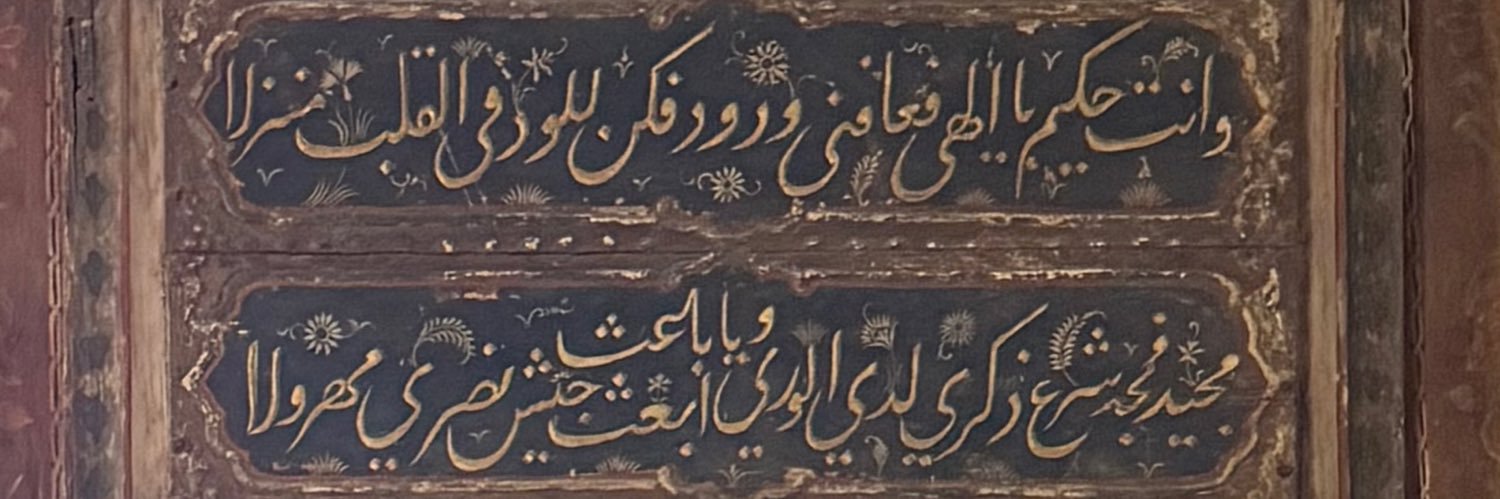 وانت حكيم يا الهي فعافني ودود فكن للود في القلب منزلا
مجيد فمجد شرع ذكري لدي الوري ويا باعث ابعث جيش نصري مهرولا